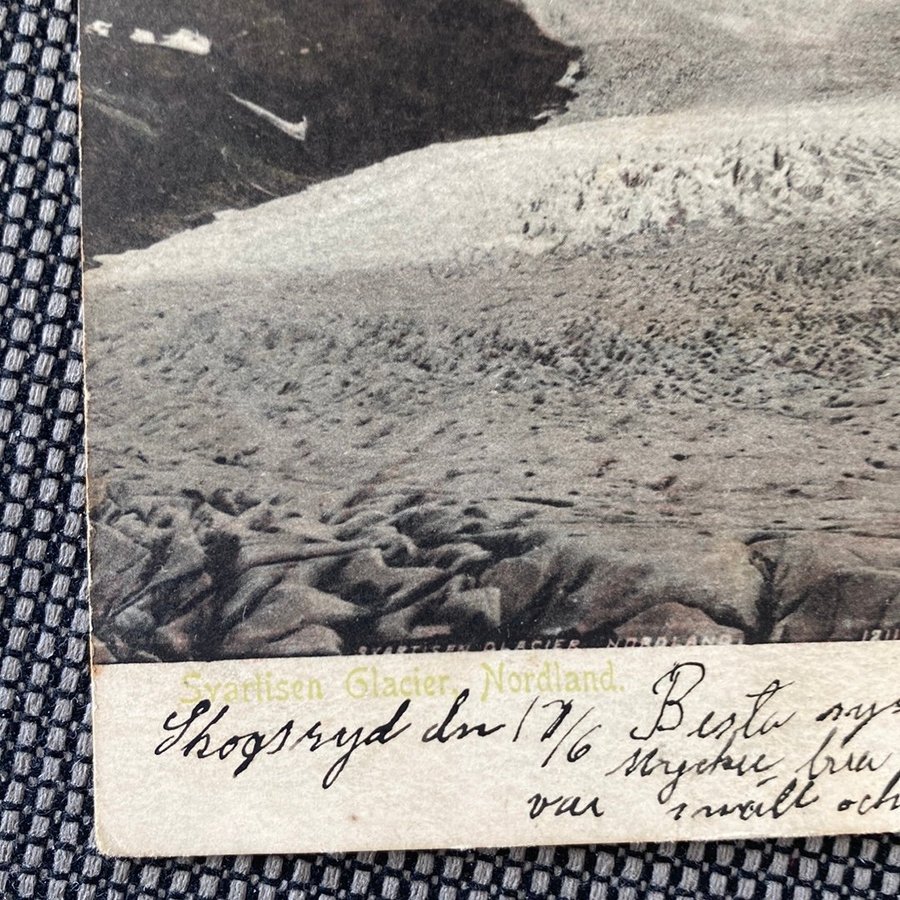 SVARTISEN GLACIER, NORDLAND 1211
Svartisen Glacier, Nordland.
Skogsryd dn 17/6 Bästa sys
Mycket bra
var snällt och